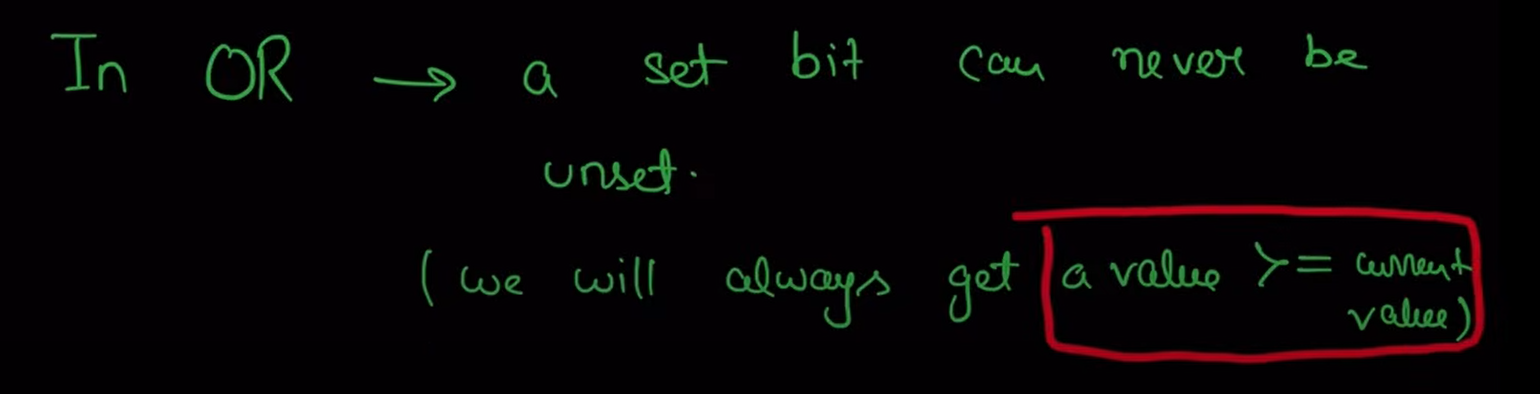 In OR → a set bit can never be
unset.
(we will always get a value >= current
value)